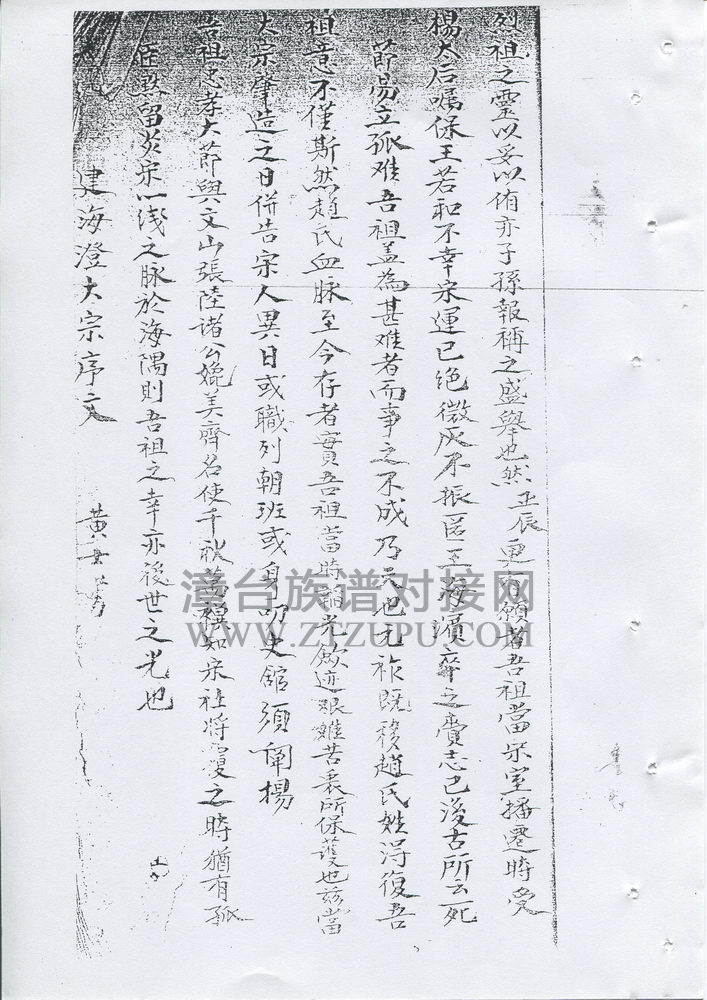 烈祖之靈以妥以侑亦子孫報稱之盛舉也然正辰更有願者吾祖當宋室播遷時受
楊太后囑保王若和不幸宋運已絕微灰不振匿王海濱齎之賫志已沒古所云死
節易立孤难吾祖盖為甚难者而事之不成乃天也元祚既移趙氏姓淂復吾
祖意不僅斯然趙氏血脉至今存者實吾祖當時韜光斂迹艰难苦衷所保護也兹當
大宗肇造之日併告宗人異日或職列朝班或身叨史館須闡揚
吾祖忠孝大節與文山張陸诸公媲美齊名使千秋萬禩知宋社将覆之時猶有孤
臣㷀留炎宋一线之脉於海隅則吾祖之幸亦後世之光也
建海澄大宗序文
黄
漳台族谱对接网
WWW.ZTZUPU.COM